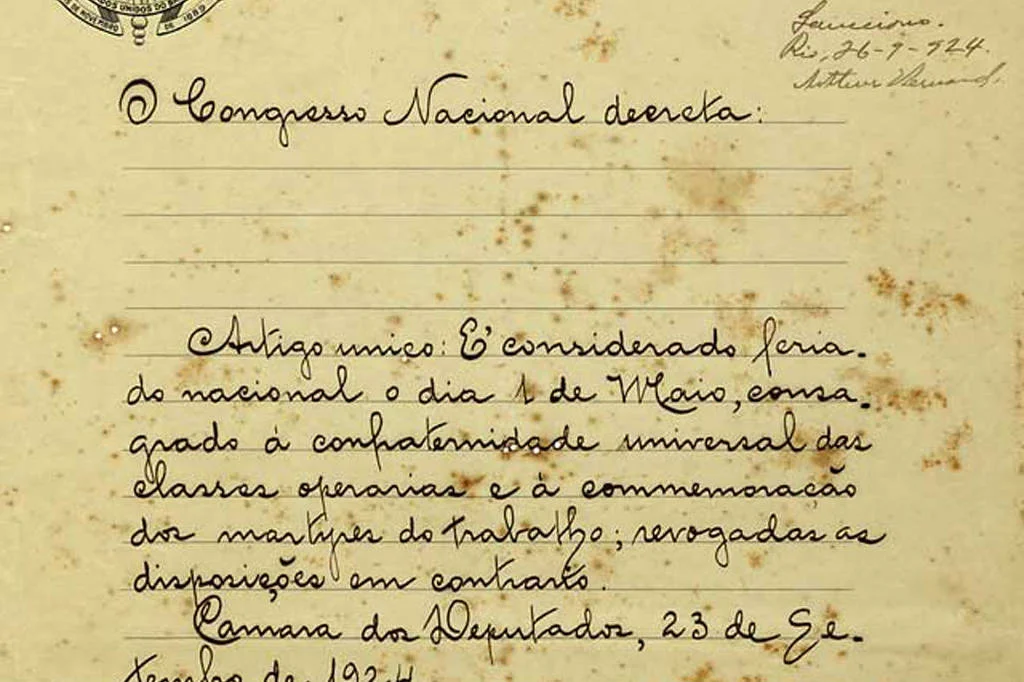 Sancciono.
Rio, 26-9-924.
Arthur Bernardes
O Congresso Nacional decreta:
Artigo unico: E' considerado feria-
do nacional o dia 1 de Maio, consa-
grado á confraternidade universal das
classes operarias e á commemoração
dos martyres do trabalho; revogadas as
disposições em contrario.
Camara dos Deputados, 23 de Se-
tembro de 1924